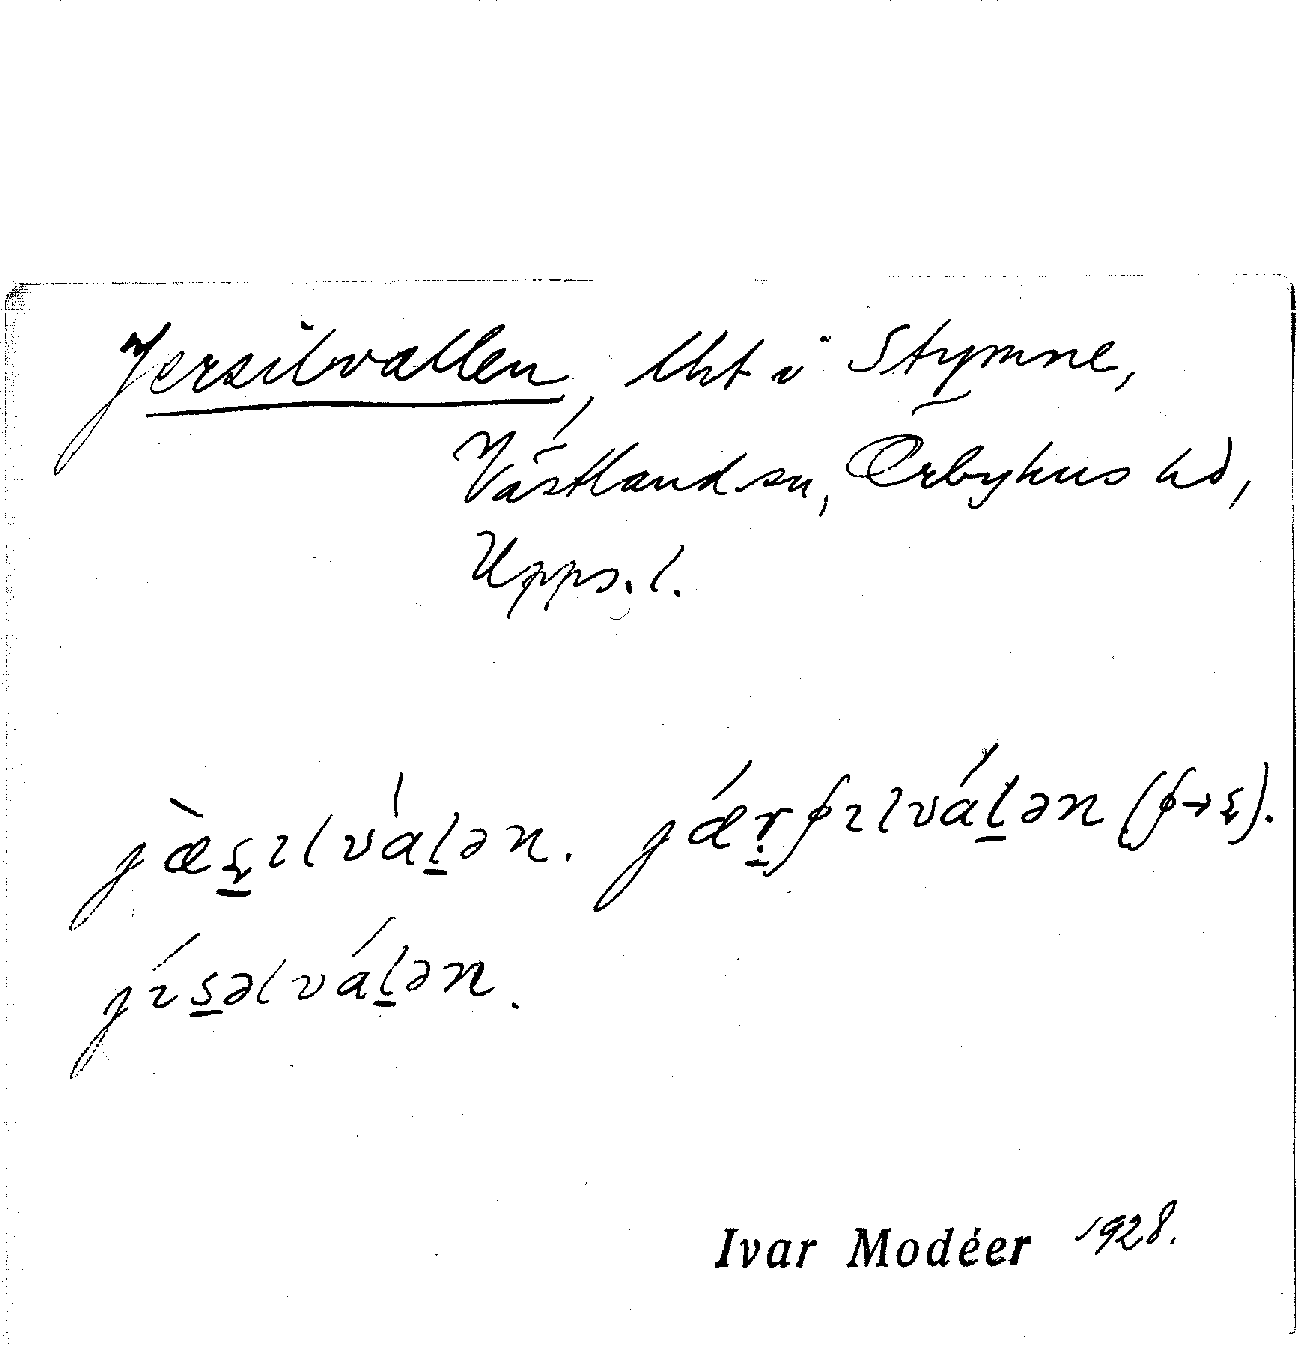 Jersilvallen, lht i Stymne,
Västland sn, Örbyhus hd,
Upps. l.
jæ̀s̱ɩlváḻən. jǽṛʃɩlváḻən (ʃ→s).
jɩ́s̱əlváḻən.
Ivar Modéer 1928.